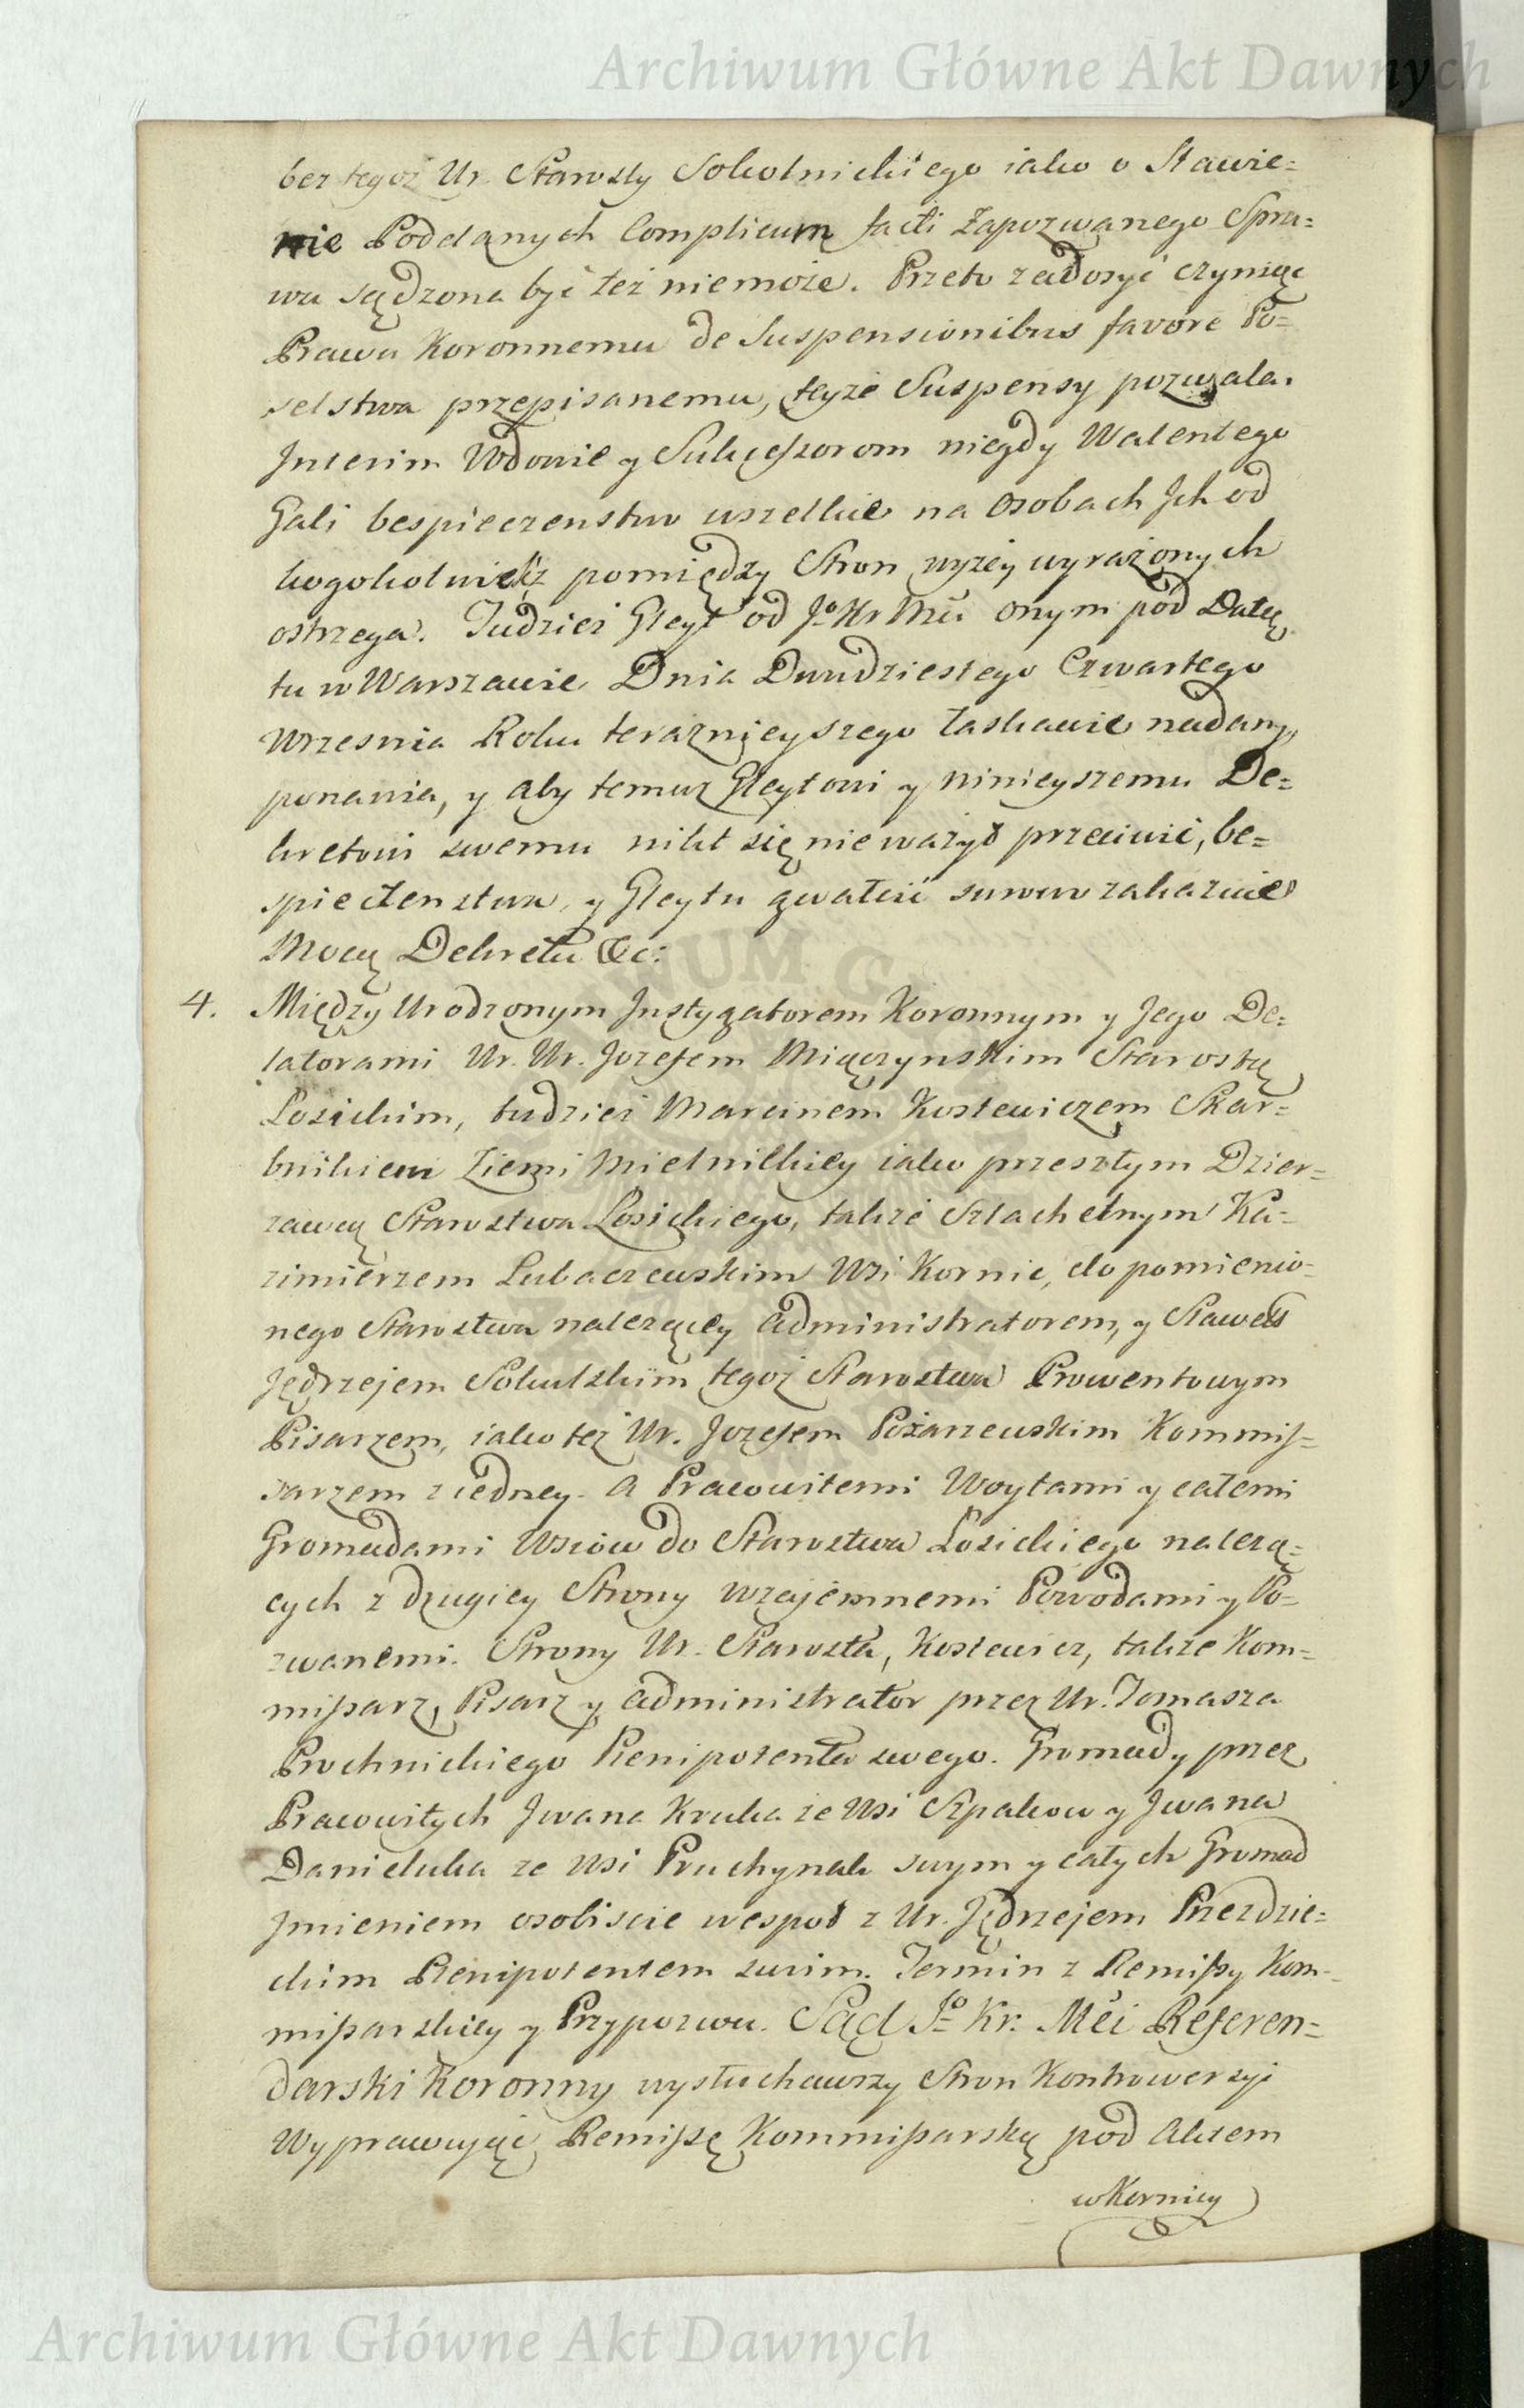 Archiwum Główne Akt Dawnych
bez tegoż Ur. Starosty Sokolnickiego iako o Stawie=
nie Poddanych Complicum facti Zapozwanego Spra=
wa sądzona być też niemoże. Przeto zadosyć czyniąc
Prawu Koronnemu de Suspensionibus favore Po=
selstwa przepisanemu, teyże Suspensy pozwala.
Interim Wdowie y Sukcessorom niegdy Walentego
Gali bespieczenstwo wszelkie na osobach Ich od
kogokolwiek z pomiędzy Stron wyżey wyrażonych
ostrzega. Tudziez Gleyt od Jo Kr Mci onym pod Datą
tu w Warszawie Dnia Dwudziestego Czwartego
Wrzesnia Roku teraznieyszego łaskawie nadany,
ponawia, y aby temuz Gleytowi y ninieyszemu De=
kretowi swemu nikt się nieważył przeciwić, be=
spieczenstwa, y Gleytu gwałcić surowo zakazuie
Mocą Dekretu &c:
4. Między Urodzonym Instygatorem Koronnym y Jego De=
latorami Ur. Ur. Jozefem Miączynskim Starostą
Łosickim, tudzież Marcinem Kostewiczem Skar=
bnikiem Ziemi Mielnickiey iako przeszłym Dzier=
zawcą Starostwa Łosickiego, także Szlachetnym Ka=
zimierzem Lubaczewskim Wsi Kornic, do pomienio=
nego Starostwa nalezącey Administratorem, y Sławet
Jędrzejem Sokulskim tegoż Starostwa Prowentowym
Pisarzem, iako też Ur. Jozefem Pożarzewskim Kommis=
sarzem z iedney. A Pracowitemi Woytami y całemi
Gromadami Wsiów do Starostwa Łosickiego nalezą=
cych z drugiey Strony wzajemnemi Powodami y Po=
zwanemi. Strony Ur. Starosta, Kostewicz, także Kom=
missarz, Pisarz y Administrator przez Ur. Tomasza
Prochnickiego Plenipotenta swego. Gromady przez
Pracowitych Iwana Kruka ze Wsi Szpakow y Iwana
Danieluka ze Wsi Pruchynak swym y całych Gromad
Imieniem osobiscie wespoł z Ur. Jędrzejem Przezdzie=
ckim Plenipotentem swim. Termin z Remissy Kom=
missarskiey y Przypozwu. Sąd Jo Kr: Mci Referen=
darski Koronny wysłuchawszy Stron Kontrowersyi
Wyprawując Remissę Kommissarską pod Aktem
w Kornicy
Archiwum Główne Akt Dawnych